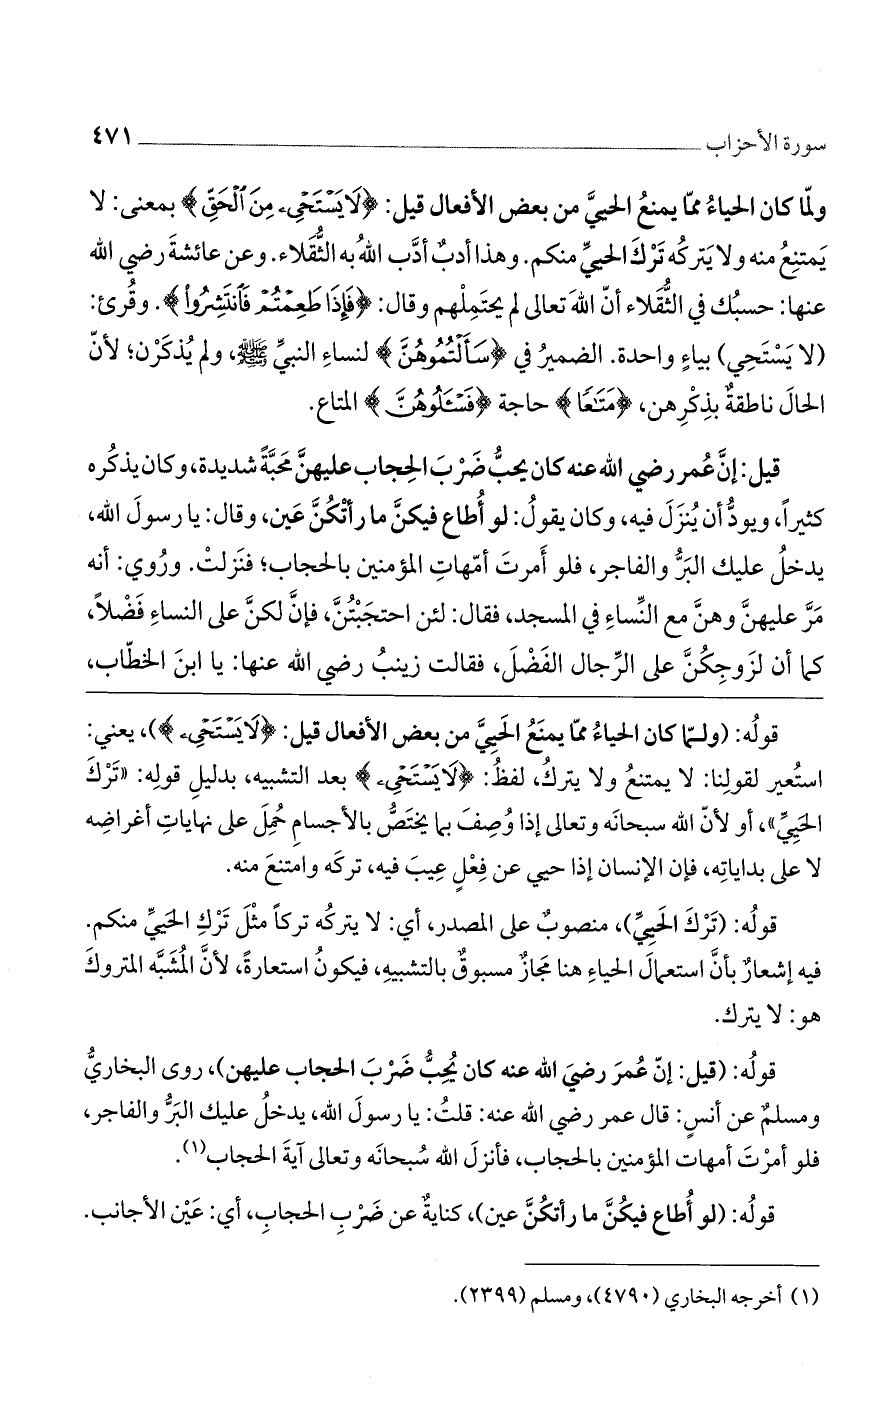 سورة الأحزاب ٤٧١
ولمّا كان الحياءُ ممّا يمنعُ الحييَّ من بعض الأفعال قيل: ﴿لَا يَسْتَحْيِۦ مِنَ ٱلْحَقِّ﴾ بمعنى: لا
يَمتنِعُ منه ولا يَتركُه تَرْكَ الحييِّ منكم. وهذا أدبٌ أدَّب اللهُ به الثُّقَلاء. وعن عائشةَ رضي الله
عنها: حسبُك في الثُّقَلاء أنّ اللهَ تعالى لم يحتَمِلْهم وقال: ﴿فَإِذَا طَعِمْتُمْ فَٱنتَشِرُواْ﴾. وقُرئ:
(لا يَسْتَحِي) بياءٍ واحدة. الضميرُ في ﴿سَأَلْتُمُوهُنَّ﴾ لنساءِ النبيِّ ﷺ، ولم يُذكَرْن؛ لأنّ
الحالَ ناطقةٌ بذِكْرِهن، ﴿مَتَٰعًا﴾ حاجة ﴿فَسْـَٔلُوهُنَّ﴾ المتاع.
قيل: إنَّ عُمر رضي الله عنه كان يحبُّ ضَرْبَ الحِجاب عليهنَّ مَحبَّةً شديدة، وكان يذكُره
كثيراً، ويودُّ أن يُنزَلَ فيه، وكان يقولُ: لو أُطاع فيكنَّ ما رأتْكُنَّ عَين، وقال: يا رسولَ الله،
يدخلُ عليك البَرُّ والفاجر، فلو أَمرتَ أمّهاتِ المؤمنين بالحجاب؛ فنَزلتْ. ورُوي: أنه
مَرَّ عليهنَّ وهنَّ مع النِّساءِ في المسجد، فقال: لئن احتجَبْتُنَّ، فإنَّ لكنَّ على النساءِ فَضْلاً،
كما أن لزَوجِكُنَّ على الرِّجال الفَضْلَ، فقالت زينبُ رضي الله عنها: يا ابنَ الخطّاب،
قولُه: (ولـمّا كان الحياءُ ممّا يمنَعُ الحَييَّ من بعض الأفعال قيل: ﴿لَا يَسْتَحْيِۦ﴾)، يعني:
استُعير لقولِنا: لا يمتنعُ ولا يتركُ، لفظُ: ﴿لَا يَسْتَحْيِۦ﴾ بعد التشبيه، بدليلِ قولِه: «تَرْكَ
الحَييِّ»، أو لأنّ الله سبحانَه وتعالى إذا وُصِفَ بما يختَصُّ بالأجسامِ حُمِلَ على نهاياتِ أغراضِه
لا على بداياتِه، فإن الإنسان إذا حيي عن فِعْلٍ عِيبَ فيه، تركَه وامتنعَ منه.
قولُه: (تَرْكَ الحَييِّ)، منصوبٌ على المصدر، أي: لا يتركُه تركاً مثْلَ تَرْكِ الحَييِّ منكم.
فيه إشعارٌ بأنَّ استعمالَ الحياءِ هنا مَجازٌ مسبوقٌ بالتشبيهِ، فيكونُ استعارةً، لأنَّ المُشبَّه المتروكَ
هو: لا يترك.
قولُه: (قيل: إنّ عُمرَ رضيَ الله عنه كان يُحِبُّ ضَرْبَ الحجاب عليهن)، روى البخاريُّ
ومسلمٌ عن أنسٍ: قال عمر رضي الله عنه: قلتُ: يا رسولَ الله، يدخلُ عليك البَرُّ والفاجر،
فلو أمرْتَ أمهات المؤمنين بالحجاب، فأنزلَ الله سُبحانَه وتعالى آيةَ الحجاب(١).
قولُه: (لو أُطاع فيكُنَّ ما رأتكُنَّ عين)، كنايةٌ عن ضَرْبِ الحجابِ، أي: عَيْن الأجانب.
(١) أخرجه البخاري (٤٧٩٠)، ومسلم (٢٣٩٩).